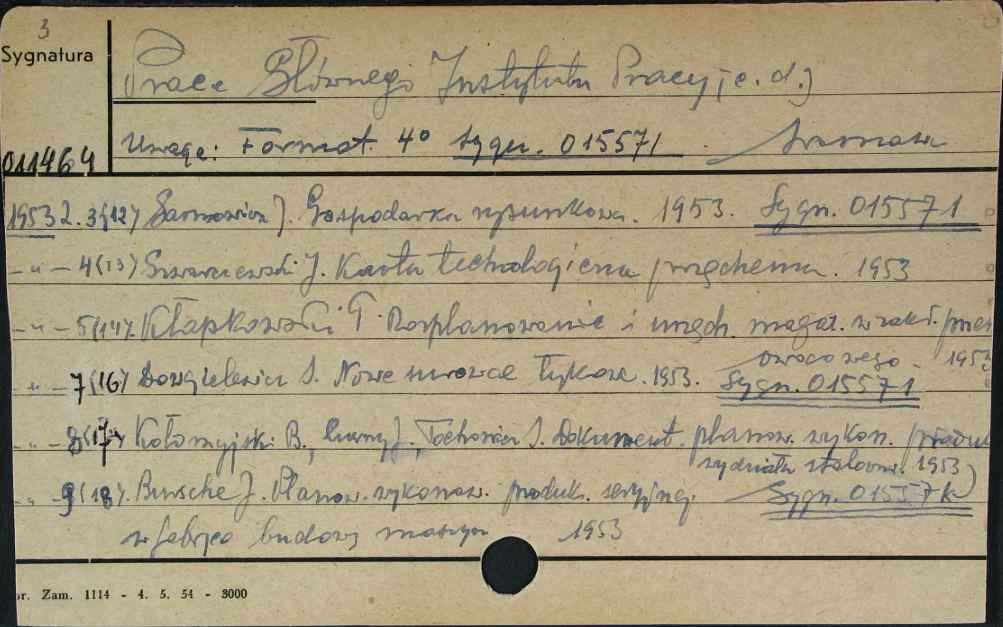 3
Sygnatura
011464
Prace Głównego Instytutu Pracy (c. d.)
Uwaga: Format 4° sygn. 015571
1953 z. 3(12) J. Gospodarka rysunkowa. 1953. Sygn. 015571
-"- 4(13) J. Karta technologiczna 1953
-"- 5(14). Kłapkowski T. Rozplanowanie i urządz. magaz. w zakł. przet
owocowego. 1953
-"- 7(16) Dowgielewicz S. Nowe surowce łykowe. 1953. Sygn. 015571
-"- 8(17) Kołomyjski B., J., Tochowicz S. Dokument. planow. wykon. produk
wydziału stalown. 1953)
-"- 9(18). Bursche J. Planow. wykonaw. produk. seryjnej Sygn. 01557k
w fabryce budowy maszyn 1953
nr. Zam. 1114 - 4. 5. 54 - 3000